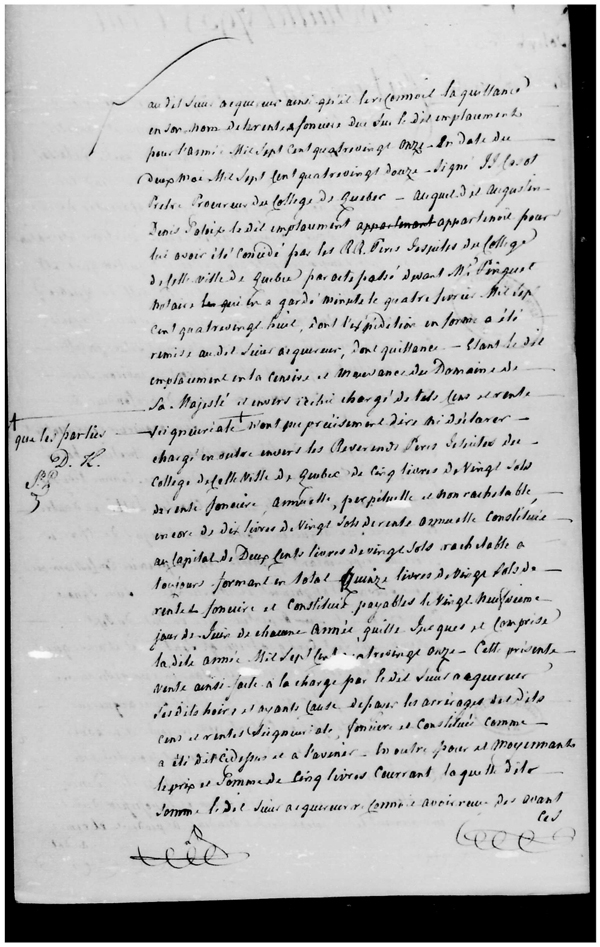 audit Sieur acquereur ainsi qu'il le reconnoit la quittance
en son nom de la rente fonciere due sur le dit emplacement
pour l'année Mil Sept Cent quatrevingt onze – En date du
deux Mai Mil Sept Cent quatrevingt douze – Signé JJ Casot
Pretre Procureur du College de Quebec – auquel dit Augustin
Denis le dit emplacement appartenant appartenoit pour
lui avoir été concedé par les R.R. Peres Jesuites du College
de cette ville de Quebec par acte passé devant Me. Pinguet
notaire qui en a gardé minute le quatre fevrier Mil Sept
Cent quatrevingt huit, dont l'expédition en forme a été
remise audit Sieur acquereur, dont quittance – Etant le dit
emplacement en la Censive et Mouvance du Domaine de
Sa Majesté et envers icelui chargé de tels Cens et rente
Seigneuriale + n'ont pu précisement dire ni déclarer –
+
que les parties
D. K.
chargé en outre envers les Reverends Peres Jesuites du
College de cette Ville de Quebec de Cinq livres de Vingt Sols
de rente fonciere, annuelle, perpétuelle et non rachetable,
encore de dix livres de Vingt Sols de rente annuelle Constituée
au Capital de Deux Cents livres de vingt Sols rachetable à
toujours formant en total Quinze livres de Vingt Sols de
rentes fonciere et Constituée payables le Vingt Neufvieme
jour de Juin de chacune Année, quitte Jusques et Comprise
la dite année Mil Sept Cent quatrevingt onze – Cette présente
vente ainsi faite à la charge par le dit Sieur acquereur
Ses dits hoirs et ayants Cause de payer les arrérages des dits
cens et rentes Seigneuriale, fonciere et Constituée comme
a été dit Cidessus et à l'avenir – En outre pour et Moyennant
le prix et Somme de Cinq livres Courrant laquelle dite
Somme le dit Sieur acquereur avoir des avant
Ces